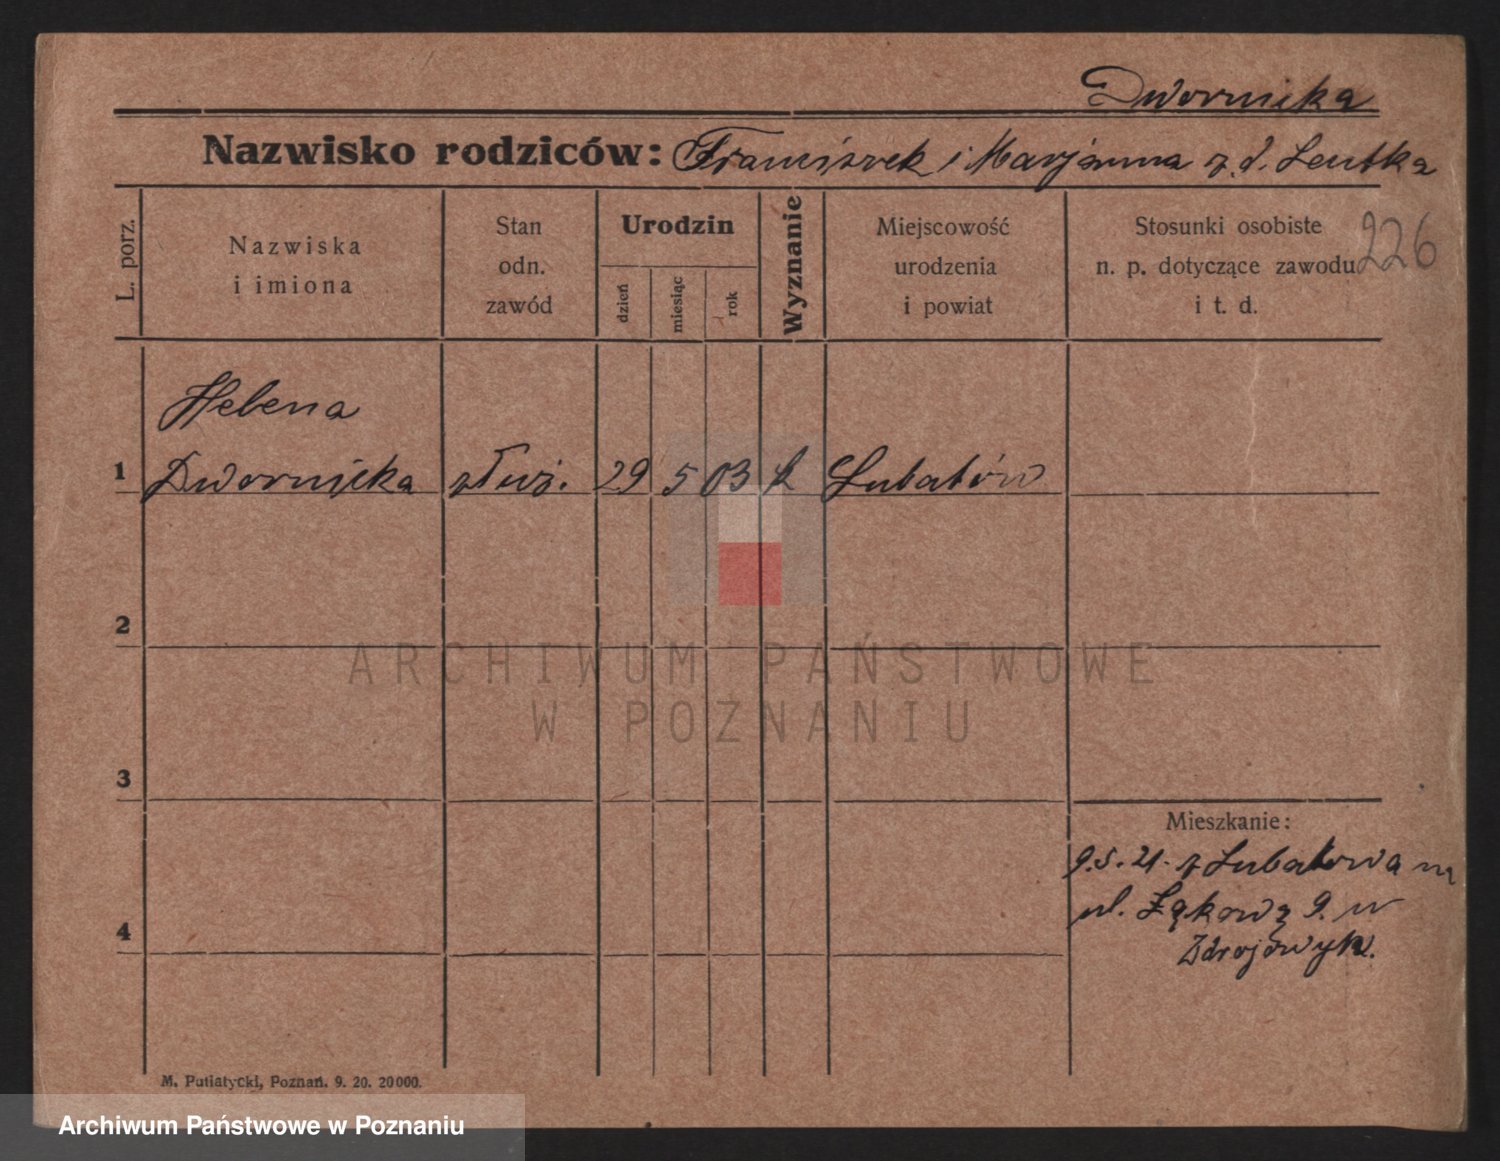 Dwornicka
Nazwisko rodziców: Franciszek i Marjanna z d. Lentka
226
L. porz.
Nazwiska
i imiona
Stan
odn.
zawód
Urodzin
dzień
miesiąc
rok
Wyznanie
Miejscowość
urodzenia
i powiat
Stosunki osobiste
n. p. dotyczące zawodu
i t. d.
Helena
1 Dwornicka służ. 29 5 03 k Lubatów
2
3
4
Mieszkanie:
9.5.21. z Lubatowa na
ul. Łąkową 9. w
M. Putiatycki, Poznań. 9. 20. 20000.
ARCHIWUM PAŃSTWOWE
W POZNANIU
Archiwum Państwowe w Poznaniu